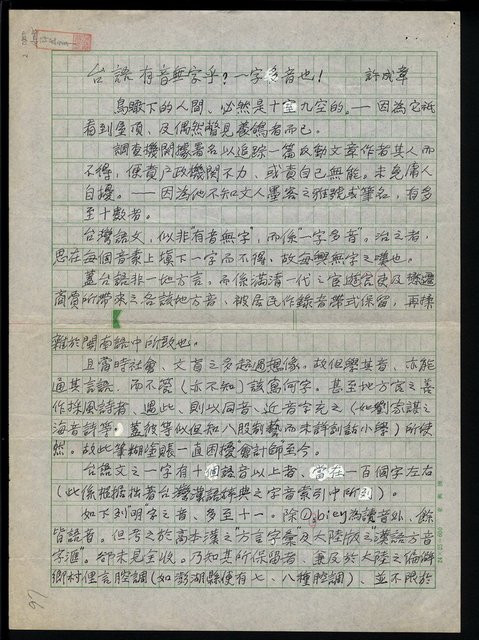 台語有音無字乎？一字多音也！ 許成章
鳥瞰下的人間、必然是十室九空的。——因為它祇
看到屋頂、及偶然瞥見養鴿者而已。
調查機關據署名以追踪一篇反動文章作者其人而
不得，便責戶政機關不力、或責自己無能。未免庸人
自擾。——因為他不知文人墨客之雅號或筆名，有多
至十數者。
台灣語文，似非"有音無字"，而係"一字多音"。治之者，
思在每個音素上填下一字而不得、故每興無字之嘆也。
蓋台語非一地方言。而係滿清一代之官遊官吏及
商賈所帶來之各該地方音、被居民作錄音帶式保留，再揉
雜於閩南語中所致也。
且當時社會、文盲之多超過想像。故但學其音、亦能
通其言語、而不管（亦不知）該寫何字。甚至地方官之善
作採風詩者、遇此、則以同音、近音字充之（如劉家謀之
海音詩等。蓋彼等似但知八股制藝而未詳訓詁小學）所使
然。故此筆糊塗賬一直困擾"會計師"至今。
台語文之一字有十個讀音以上者、當在一百個字左右
（此係根據拙著台灣漢語辭典之字音索引中所列）。
如下列明字之音、多至十一。除①biey為讀音外、餘
皆語音。但考之於高本漢之"方言字彙"及大陸版之"漢語方音
字滙"。卻未見全收。乃知其所保留者、兼及於大陸之偏僻
鄉村俚言腔調（如澎湖縣便有七、八種腔調）、並不限於